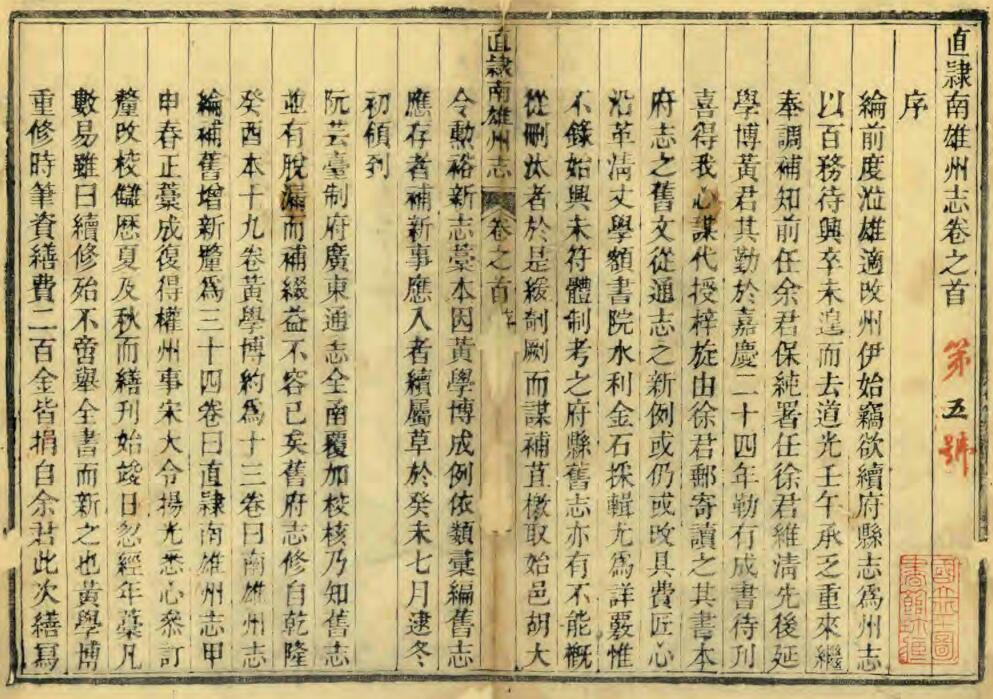 直隸南雄州志卷之首
第五號
序
綸前度涖雄適改州伊始竊欲續府縣志為州志
以百務待興卒未遑而去道光壬午承乏重來繼
奉調補知前任余君保純署任徐君維清先後延
學博黃君其勤於嘉慶二十四年勒有成書待刋
喜得我心謀代授梓旋由徐君郵寄讀之其書本
府志之舊文從通志之新例或仍或改具費匠心
沿革清丈學額書院水利金石採輯尤為詳覈惟
不錄始興未符體制考之府縣舊志亦有不能概
從刪汰者於是緩剞劂而謀補苴檄取始邑胡大
直隸南雄州志 卷之首 序
令勳裕新志藁本因黃學博成例依類彙編舊志
應存者補新事應入者續屬草於癸未七月逮冬
初領到
阮芸臺制府廣東通志全函覆加校核乃知舊志
並有脫漏而補綴益不容已矣舊府志修自乾隆
癸酉本十九卷黃學博約為十三卷曰南雄州志
綸補舊增新釐為三十四卷曰直隸南雄州志甲
申春正藁成復得權州事宋大令揚光悉心叅訂
釐改校讎歷夏及秋而繕刋始竣日忽經年藁凡
數易雖曰續修殆不啻舉全書而新之也黃學博
重修時筆資繕費二百金皆捐自余君此次繕寫